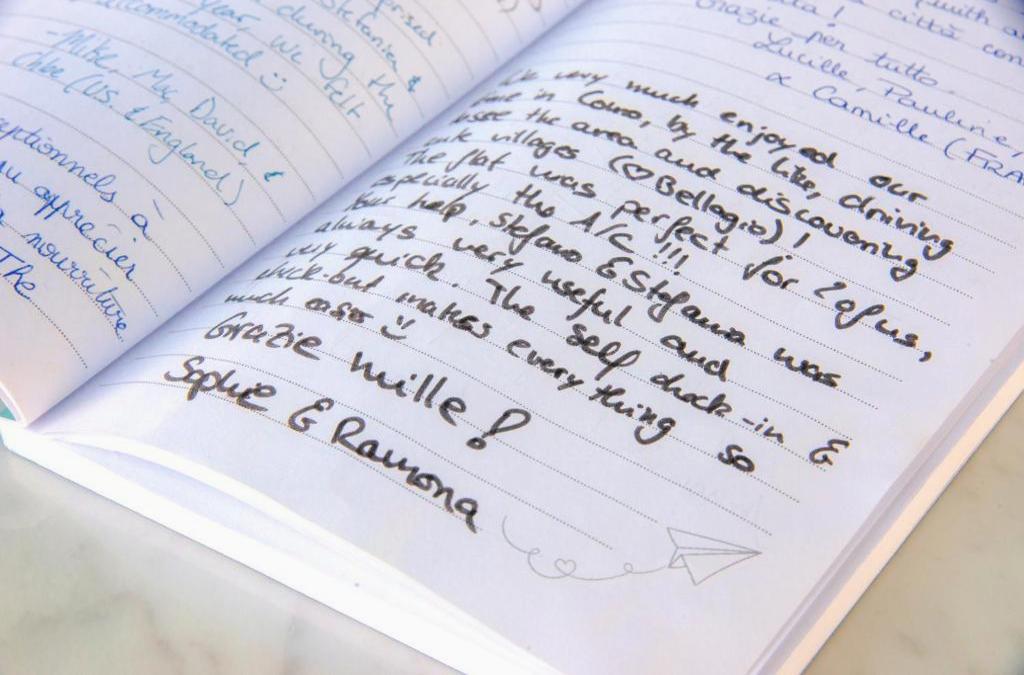 Stefania &
during the
year, we felt
accommodated :)
-Mike, Mac, David &
Chloe (US & England)
à
apprécier
nourriture
The
città con
Grazie per tutto.
Lucille, Pauline,
& Camille (FRA
We very much enjoyed our
time in Como, by the like, driving
see the area and discovering
villages (♡Bellagio)!
The flat was perfect for 2 of us,
especially the A/C!!!
Your help, Stefano & Stefania was
always very useful and
very quick. The self check-in &
check-out makes everything so
much easier :)
Grazie mille!
Sophie & Ramona